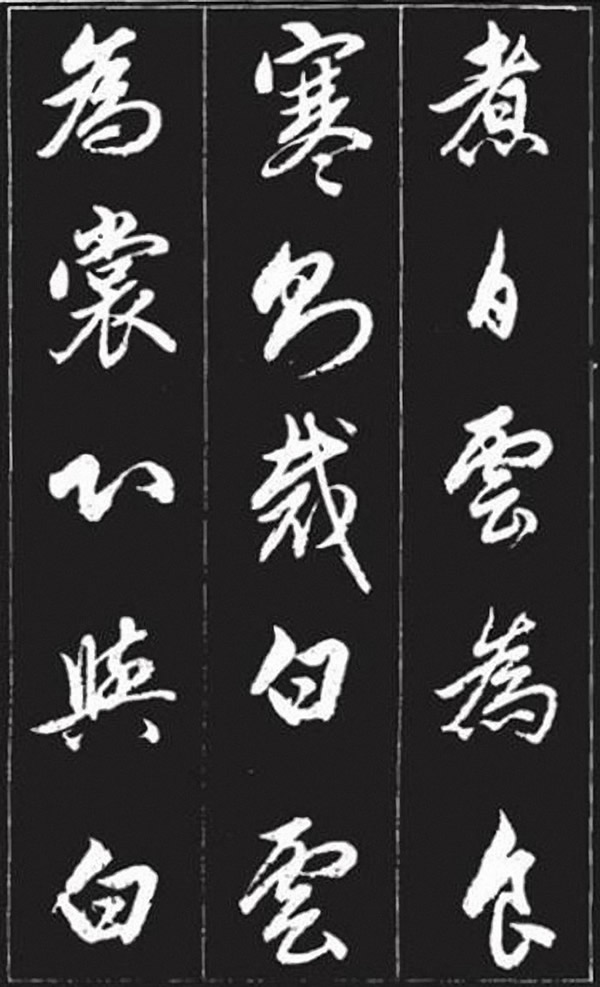 煮白雲為食
寒則裁白雲
為裳以與白